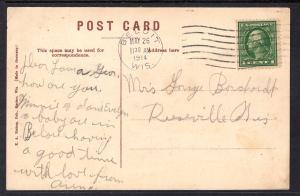 POST CARD
This space may be used for correspondence.
Address here
MAY 26
1914
WIS.
Dear Lona & Geo.
how are you
Minnie & I and Evelyn
& baby are in
Beloit having
a good time
with love from
Anna
Mrs George Borchardt
Reeseville Wis